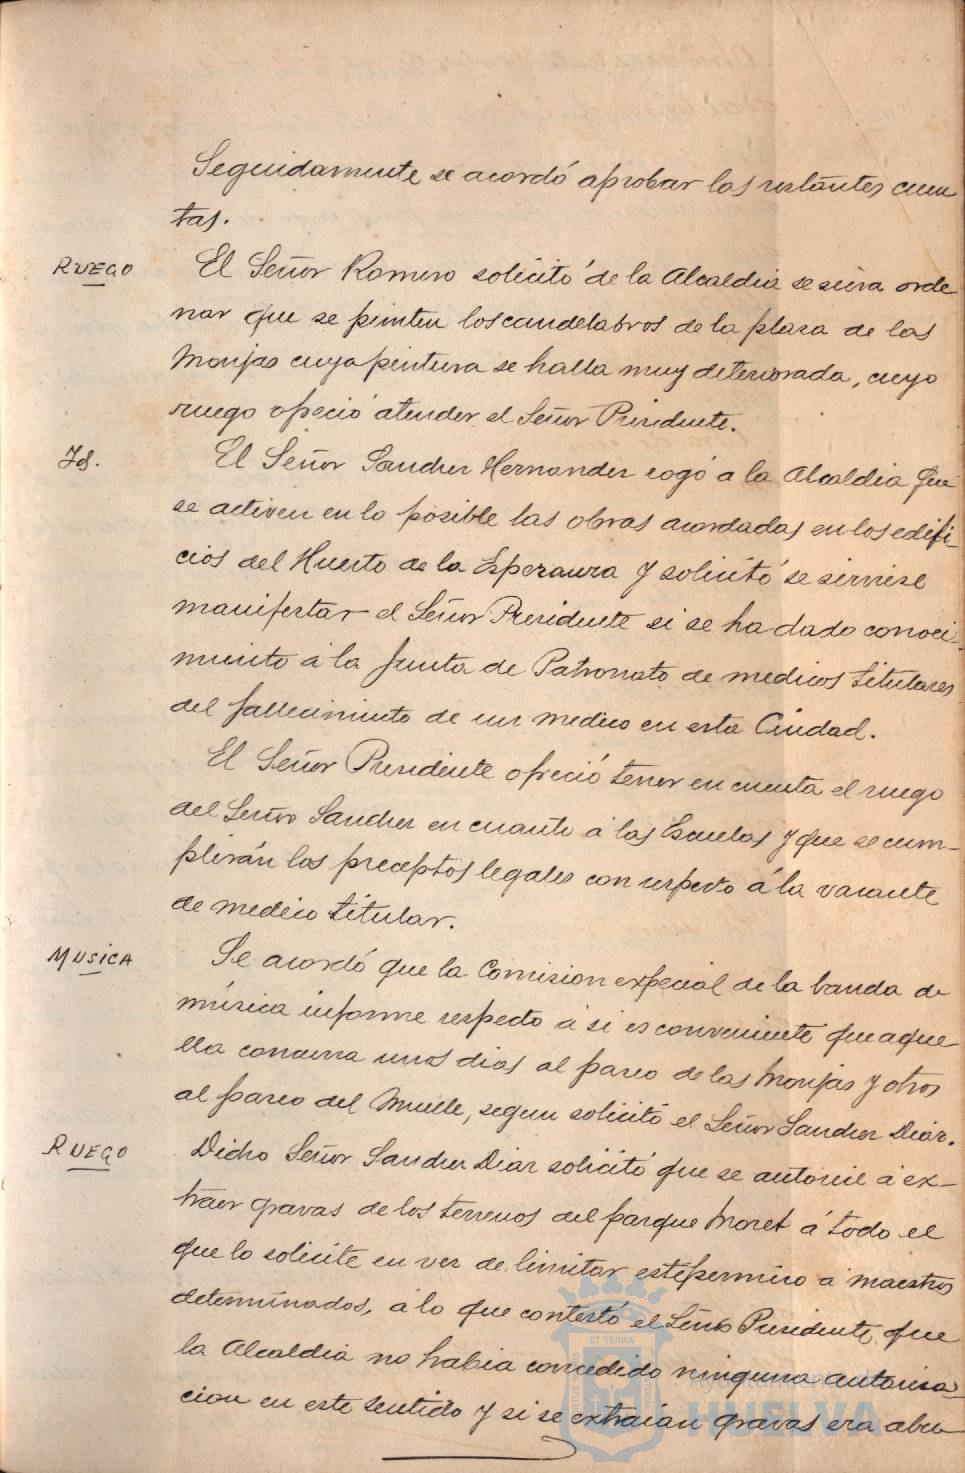 Seguidamente se acordó aprobar las restantes cuen
tas.
RUEGO
El Señor Romero solicitó de la Alcaldia se sirva orde
nar que se pinten los candelabros de la plaza de las
Monjas cuya pintura se halla muy deteriorada, cuyo
ruego ofreció atender el Señor Presidente.
Id.
El Señor Sanchez Hernandez rogó a la Alcaldia que
se activen en lo posible las obras acordadas en los edifi-
cios del Huerto de la Esperanza y solicitó se sirviese
manifestar el Señor Presidente si se ha dado conoci-
miento á la Junta de Patronato de medicos titulares
del fallecimiento de un medico en esta Ciudad.
El Señor Presidente ofreció tener en cuenta el ruego
del Señor Sanchez en cuanto á las Escuelas y que se cum-
plirán los preceptos legales con respecto á la vacante
de medico titular.
MUSICA
Se acordó que la Comision especial de la banda de
música informe respecto á si es conveniente que aque
lla concurra unos dias al paseo de las Monjas y otros
al paseo del Muelle, segun solicitó el Señor Sanchez Diaz.
RUEGO
Dicho Señor Sanchez Diaz solicitó que se autorice á ex-
traer gravas de los terrenos del parque Moret á todo el
que lo solicite en vez de limitar este permiso á maestros
determinados, á lo que contestó el Señor Presidente que
la Alcaldia no habia concedido ninguna autoriza-
cion en este sentido y si se extraian gravas era abu-
ET TERRÆ
Ayuntamiento de
HUELVA